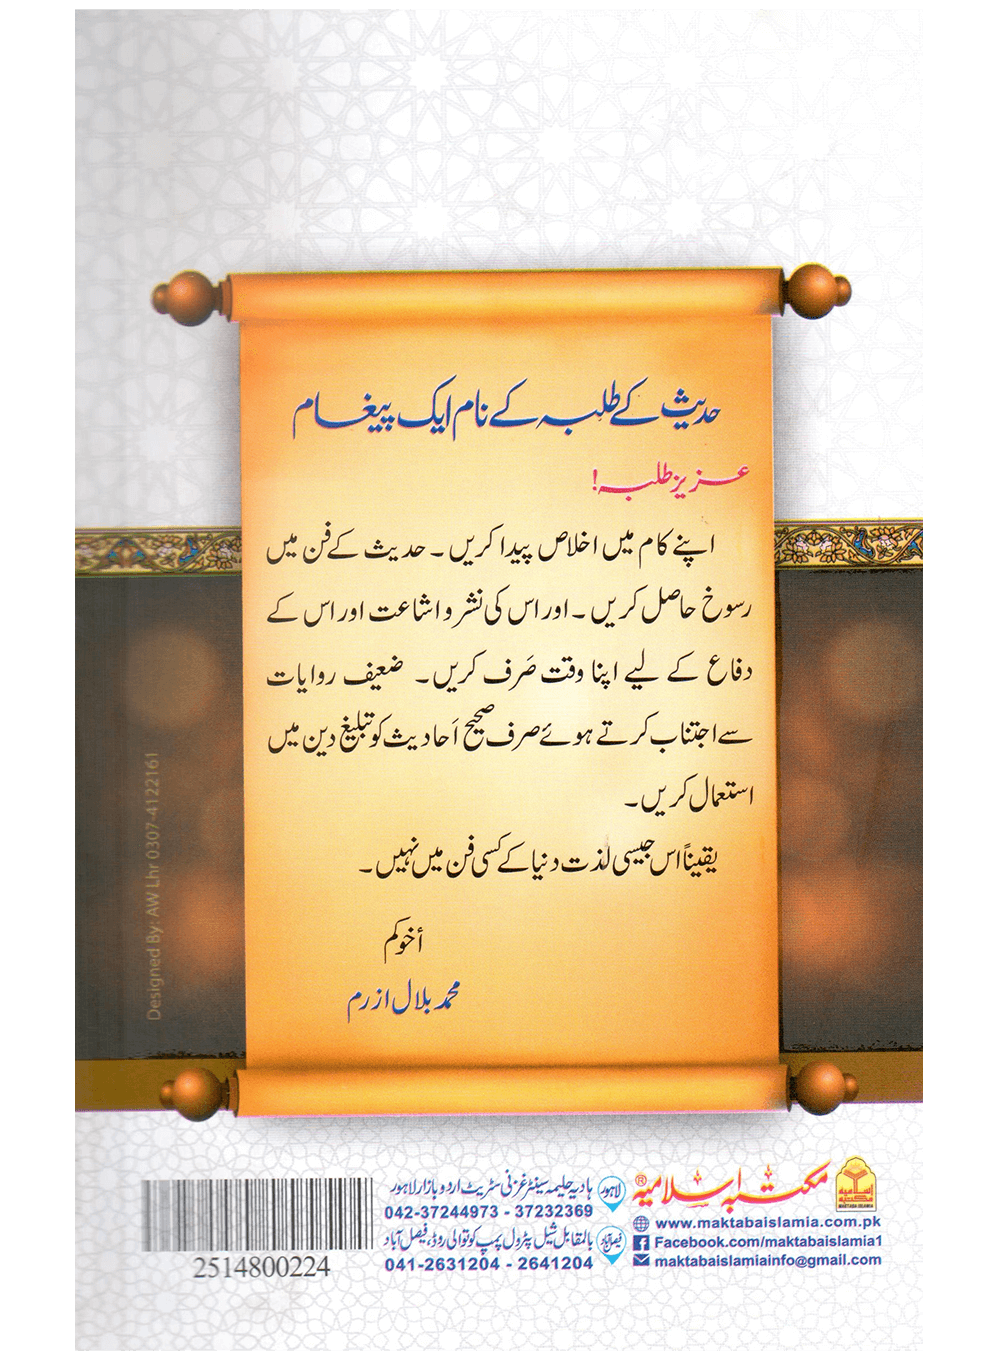 حدیث کے طلبہ کے نام ایک پیغام
عزیز طلبہ!
اپنے کام میں اخلاص پیدا کریں۔ حدیث کے فن میں
رسوخ حاصل کریں۔ اور اس کی نشر و اشاعت اور اس کے
دفاع کے لیے اپنا وقت صَرف کریں۔ ضعیف روایات
سے اجتناب کرتے ہوئے صرف صحیح أحادیث کو تبلیغ دین میں
استعمال کریں۔
یقیناً اس جیسی لذت دنیا کے کسی فن میں نہیں۔
أخوکم
محمد بلال ازرم
Designed By: AW Lhr 0307-4122161
مکتبہ اسلامیہ ®
اسلامیہ
مکتبہ
MAKTABA ISLAMIA
www.maktabaislamia.com.pk
Facebook.com/maktabaislamia1
maktabaislamiainfo@gmail.com
لاہور
ہادیہ حلیمہ سینٹر غزنی سٹریٹ اردو بازار لاہور
042-37244973 - 37232369
فیصل آباد
بالمقابل شیل پٹرول پمپ کوتوالی روڈ، فیصل آباد
041-2631204 - 2641204
2514800224